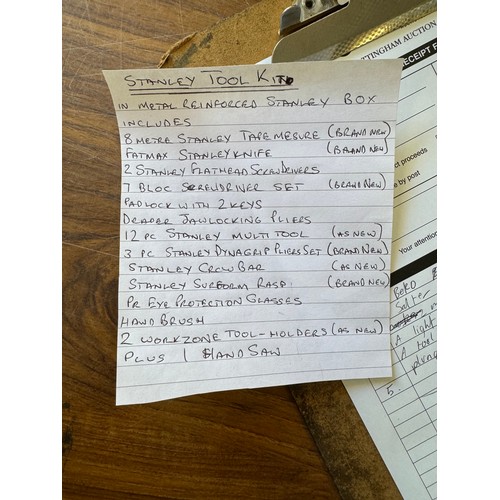 STANLEY TOOL KIT
IN METAL REINFORCED STANLEY BOX
INCLUDES
8 METRE STANLEY TAPE MESURE (BRAND NEW)
FATMAX STANLEY KNIFE (BRAND NEW)
2 STANLEY FLATHEAD SCREWDRIVERS
7 BLOC SCREWDRIVER SET (BRAND NEW)
PADLOCK WITH 2 KEYS
DRAPER JAWLOCKING PLIERS
12 PC STANLEY MULTI TOOL (AS NEW)
3 PC STANLEY DYNAGRIP PLIERS SET (BRAND NEW)
STANLEY CROW BAR (AS NEW)
STANLEY SURFORM RASP. (BRAND NEW)
PR EYE PROTECTION GLASSES
HAND BRUSH
2 WORKZONE TOOL-HOLDERS (AS NEW)
PLUS 1 HAND SAW
TTINGHAM AUCTION
RECEIPT F
ct proceeds
e by post
Your attention
Beko
Salter
A light
A tool
5.